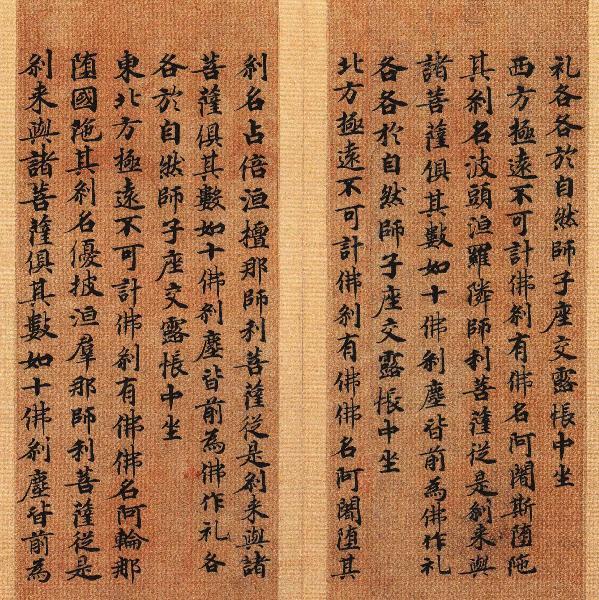 礼各各於自然師子座交露帳中坐
西方極遠不可計佛刹有佛名阿闍斯堕陁
其刹名波頭洹羅隣師利菩薩從是刹来與
諸菩薩俱其數如十佛刹塵皆前為佛作礼
各各於自然師子座交露帳中坐
北方極遠不可計佛刹有佛佛名阿闍堕其
刹名占倍洹檀那師利菩薩從是刹来與諸
菩薩俱其數如十佛刹塵皆前為佛作礼各
各於自然師子座交露帳中坐
東北方極遠不可計佛刹有佛佛名阿輪那
堕國陁其刹名優披洹羣那師利菩薩從是
刹来與諸菩薩俱其數如十佛刹塵皆前為